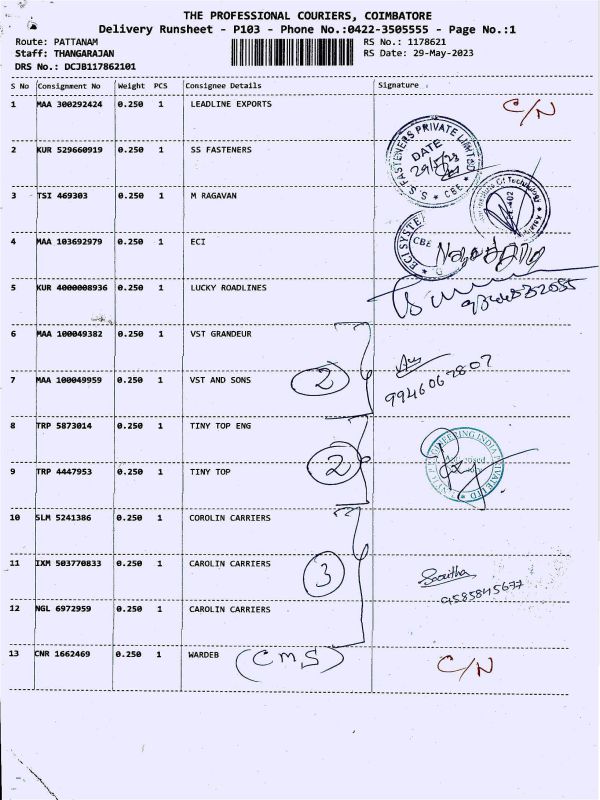 THE PROFESSIONAL COURIERS, COIMBATORE
Delivery Runsheet - P103 - Phone No.:0422-3505555 - Page No.:1
Route: PATTANAM RS No.: 1178621
Staff: THANGARAJAN RS Date: 29-May-2023
DRS No.: DCJB117862101
S No Consignment No Weight PCS Consignee Details Signature
1 MAA 300292424 0.250 1 LEADLINE EXPORTS C/N
2 KUR 529660919 0.250 1 SS FASTENERS
S.S. FASTENERS PRIVATE LIMITED
DATE
29/5/23
CBE
3 TSI 469303 0.250 1 M RAGAVAN
4 MAA 103692979 0.250 1 ECI
ECI SYSTE
CBE
5 KUR 4000008936 0.250 1 LUCKY ROADLINES
6 MAA 100049382 0.250 1 VST GRANDEUR
7 MAA 100049959 0.250 1 VST AND SONS 2
9946067807
8 TRP 5873014 0.250 1 TINY TOP ENG
9 TRP 4447953 0.250 1 TINY TOP 2
10 SLM 5241386 0.250 1 COROLIN CARRIERS
11 IXM 503770833 0.250 1 CAROLIN CARRIERS 3
9585845677
12 NGL 6972959 0.250 1 CAROLIN CARRIERS
13 CNR 1662469 0.250 1 WARDEB (CMS) C/N